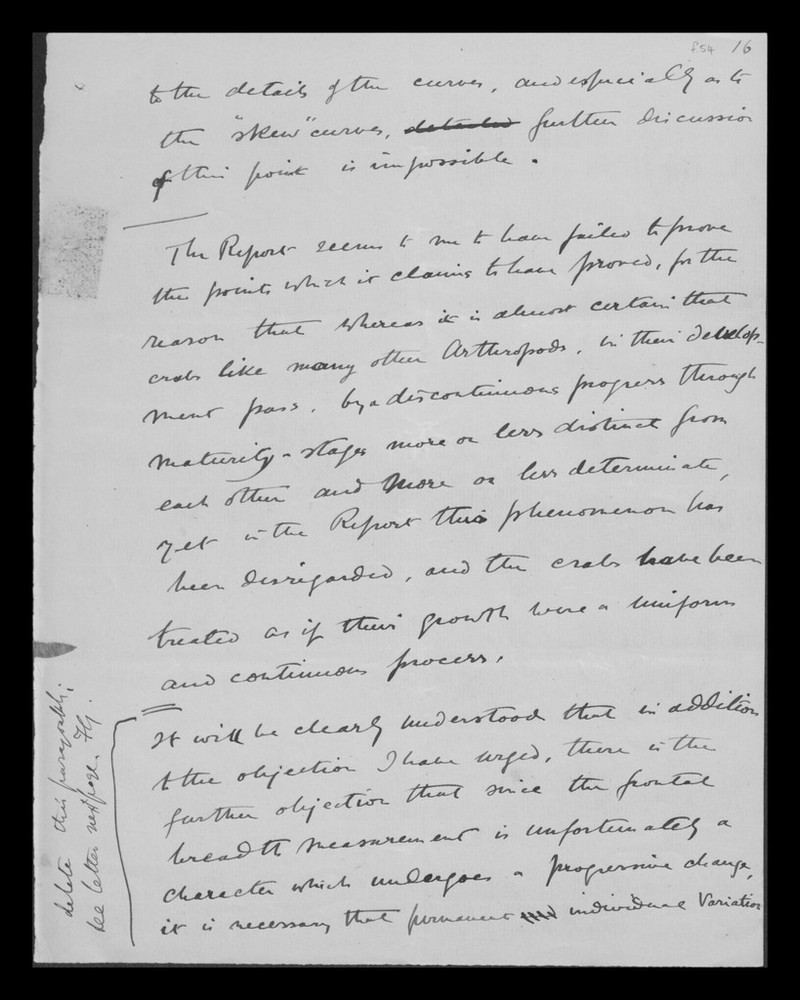 f.54 16
to the details of the curves, and especially as to
the "skew" curves, detailed further discussion
of this point is impossible.
The Report seems to me to have failed to prove
the points which it claims to have proved, for the
reason that whereas it is almost certain that
crabs like many other Arthropods, in their develop-
ment pass, by a discontinuous progress through
maturity-stages more or less distinct from
each other and more or less determinate,
yet in the Report this phenomenon has
been disregarded, and the crabs have been
treated as if their growth were a uniform
and continuous process.
It will be clearly understood that in addition
to the objection I have urged, there is the
further objection that since the frontal
breadth measurement is unfortunately a
character which undergoes a progressive change,
it is necessary that permanent individual Variation
delete this paragraph;
see letter next page. FG.